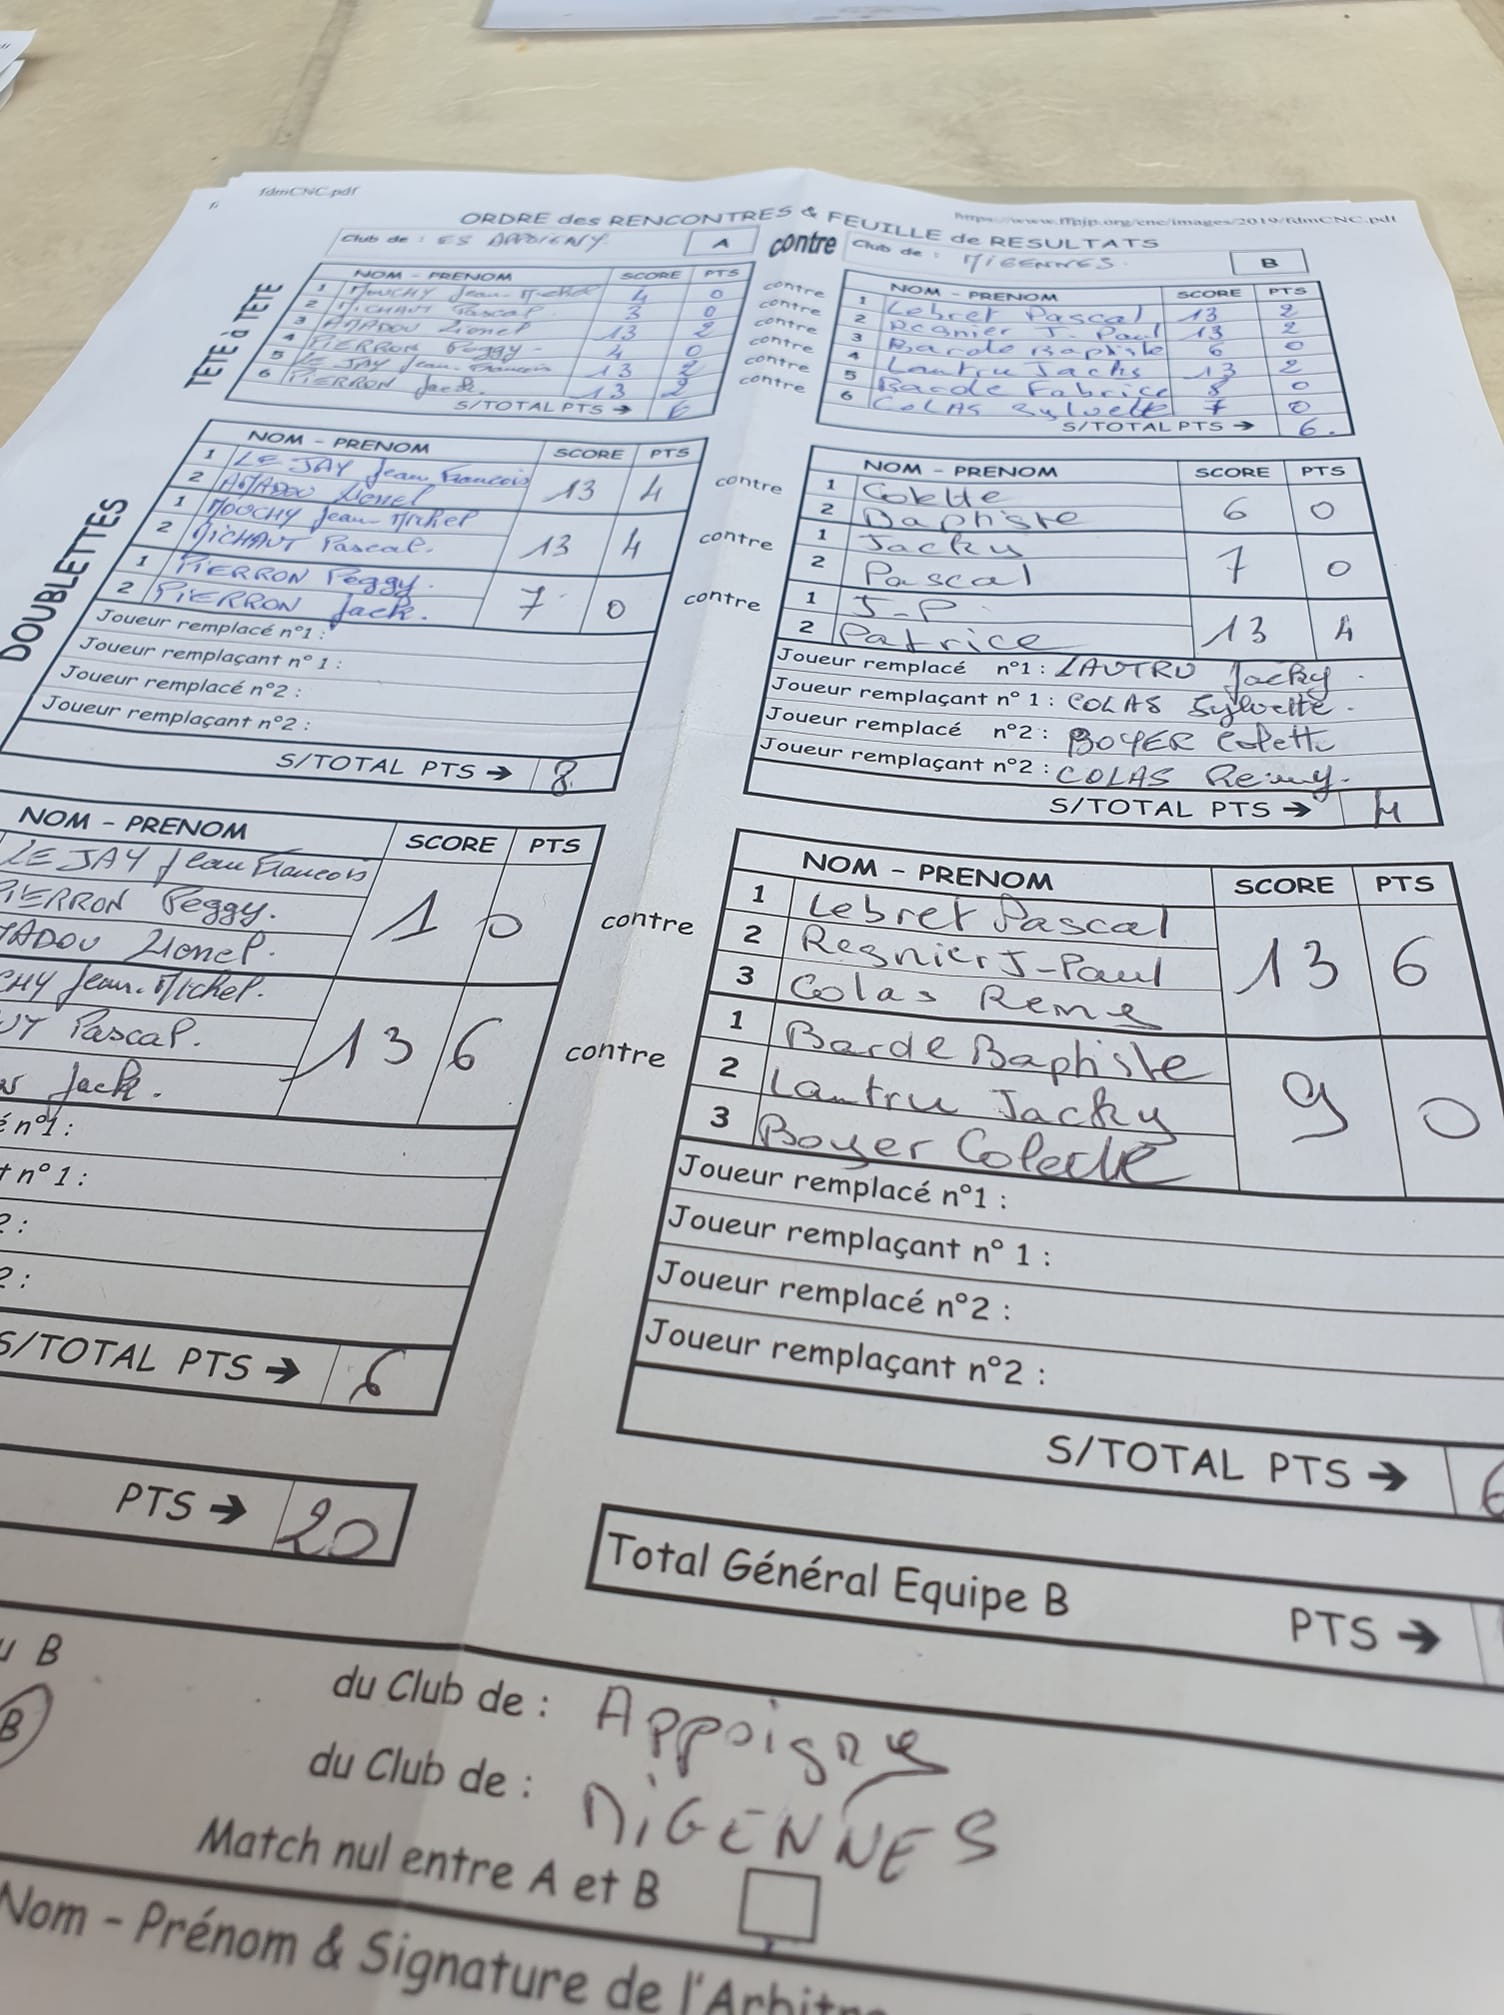 fdmCNC.pdf
https://www.ffpjp.org/cnc/images/2019/fdmCNC.pdf
ORDRE des RENCONTRES & FEUILLE de RESULTATS
Club de : ES APPOIGNY A contre Club de : MIGENNES B
TETE à TETE
NOM - PRENOM SCORE PTS
1 MOUCHY Jean-Michel 4 0 contre
2 MICHAUT Pascal 3 0 contre
3 AMADOU Lionel 13 2 contre
4 PIERRON Peggy 4 0 contre
5 LE JAY Jean-Francois 13 2 contre
6 PIERRON Jack. 13 2 contre
S/TOTAL PTS → 6
NOM - PRENOM SCORE PTS
1 Lebret Pascal 13 2
2 Regnier J-Paul 13 2
3 Barde Baptiste 6 0
4 Lautru Jacky 13 2
5 Barde Fabrice 8 0
6 COLAS Sylvette 7 0
S/TOTAL PTS → 6.
DOUBLETTES
NOM - PRENOM SCORE PTS
1 LE JAY Jean Francois
2 AMADOU Lionel 13 4 contre
1 MOUCHY Jean-Michel
2 MICHAUT Pascal. 13 4 contre
1 PIERRON Peggy.
2 PIERRON Jack. 7 0 contre
Joueur remplacé n°1 :
Joueur remplaçant n° 1 :
Joueur remplacé n°2 :
Joueur remplaçant n°2 :
S/TOTAL PTS → 8
NOM - PRENOM SCORE PTS
1 Colette
2 Baptiste 6 0
1 Jacky
2 Pascal 7 0
1 J-P
2 Patrice 13 4
Joueur remplacé n°1 : LAUTRU Jacky.
Joueur remplaçant n° 1 : COLAS Sylvette.
Joueur remplacé n°2 : BOYER Colette
Joueur remplaçant n°2 : COLAS Remy.
S/TOTAL PTS → 4
NOM - PRENOM SCORE PTS
LE JAY Jean Francois
PIERRON Peggy.
MADOU Lionel. 1 0 contre
CHY Jean-Michel.
UT Pascal.
Jack. 13 6 contre
é n°1 :
t n° 1 :
2 :
2 :
S/TOTAL PTS → 6
NOM - PRENOM SCORE PTS
1 Lebret Pascal
2 Regnier J-Paul
3 Colas Remy 13 6
1 Barde Baptiste
2 Lautru Jacky
3 Boyer Colette 9 0
Joueur remplacé n°1 :
Joueur remplaçant n° 1 :
Joueur remplacé n°2 :
Joueur remplaçant n°2 :
S/TOTAL PTS → 6
PTS → 20
Total Général Equipe B PTS →
u B du Club de : Appoigny
B du Club de : MIGENNES
Match nul entre A et B
Nom - Prénom & Signature de l'Arbitre